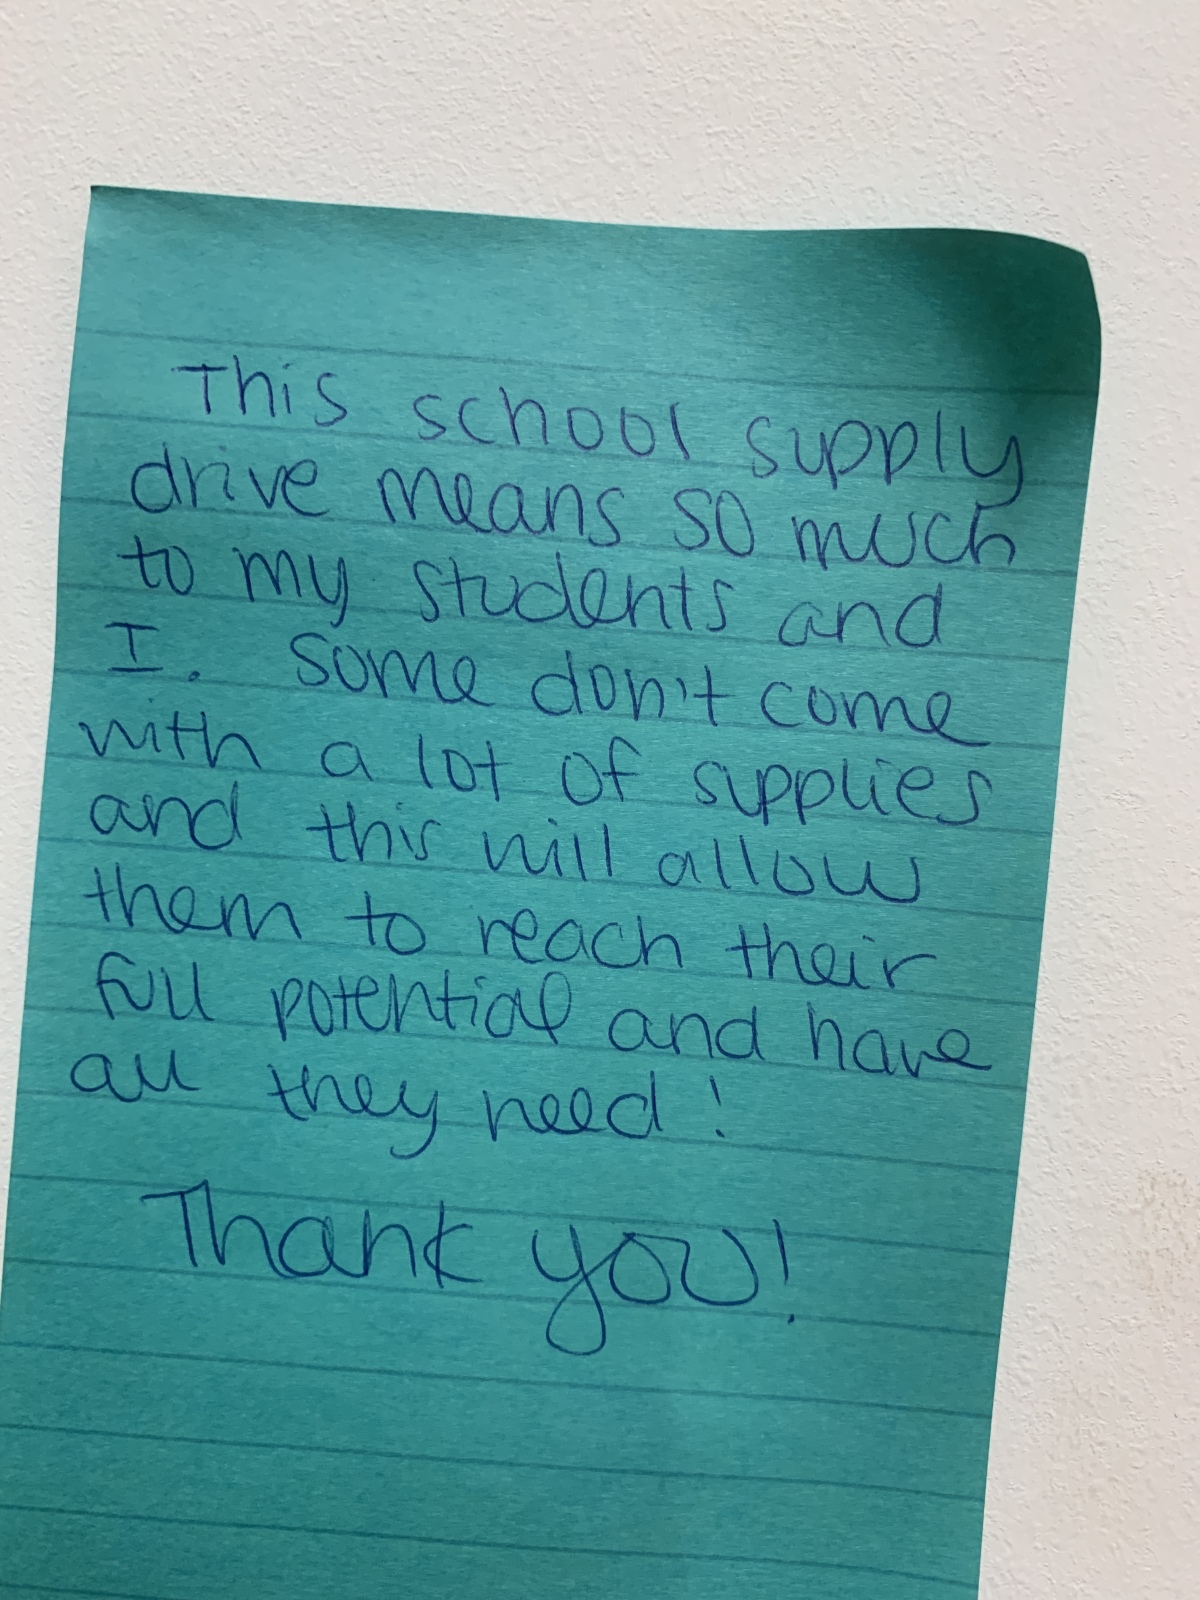 This school supply
drive means so much
to my students and
I. Some don't come
with a lot of supplies
and this will allow
them to reach their
full potential and have
all they need!
Thank you!